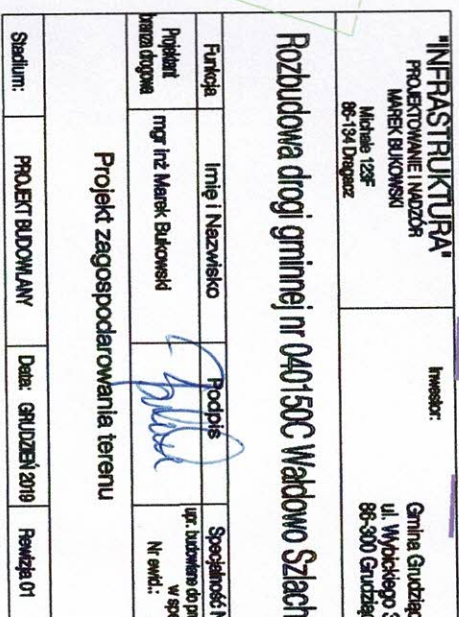 "INFRASTRUKTURA"
PROJEKTOWANIE I NADZÓR
MAREK BUKOWSKI
Michale 123F
86-134 Dragacz
Inwestor:
Gmina Grudziąd
ul. Wybickiego
86-300 Grudziąd
Rozbudowa drogi gminnej nr 040150C Wałdowo Szlach
Funkcja Imię i Nazwisko Podpis Specjalność N
Projektant
branża drogowa
mgr inż Marek Bukowski
upr. budowlane do pr
w spe
Nr ewid.:
Projekt zagospodarowania terenu
Stadium: PROJEKT BUDOWLANY Data: GRUDZIEŃ 2019 Rewizja 01